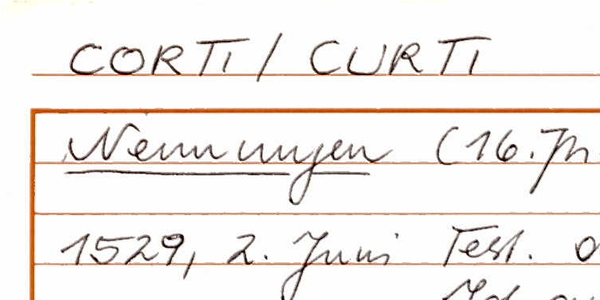 CORTI / CURTI
Nennungen (16. Jh
1529, 2. Juni Test.